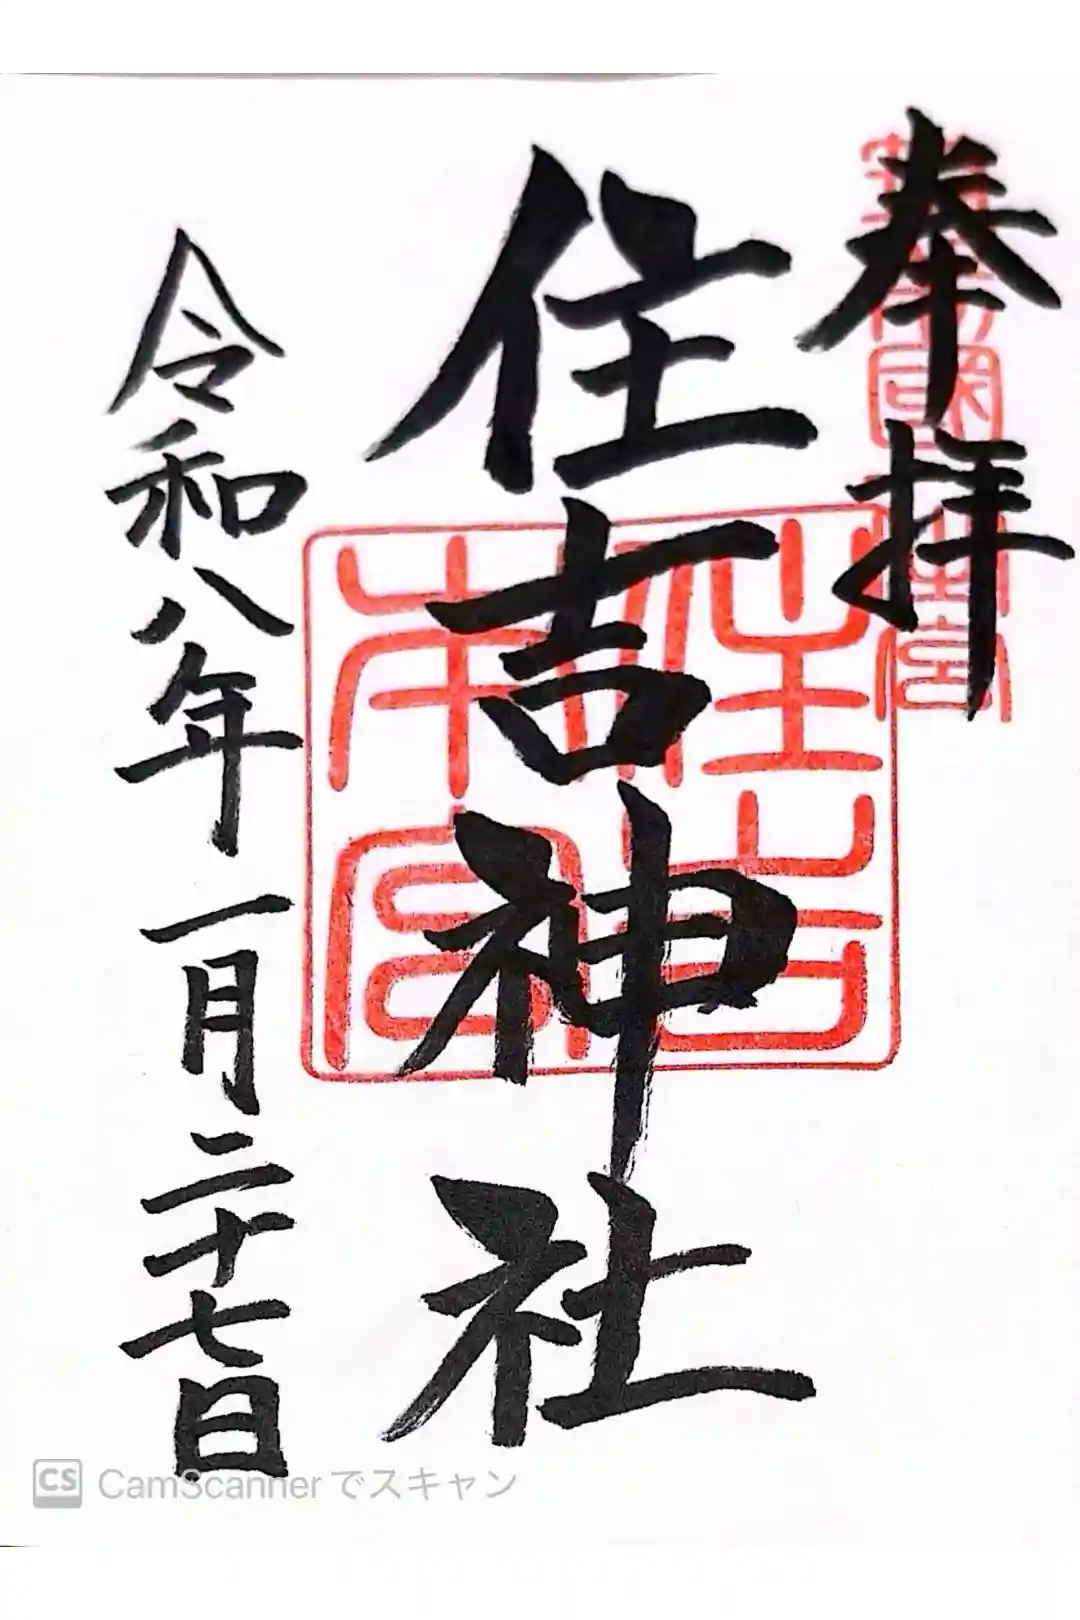 奉拝
住吉神社
令和八年一月二十七日
住吉
本宮
CS CamScannerでスキャン